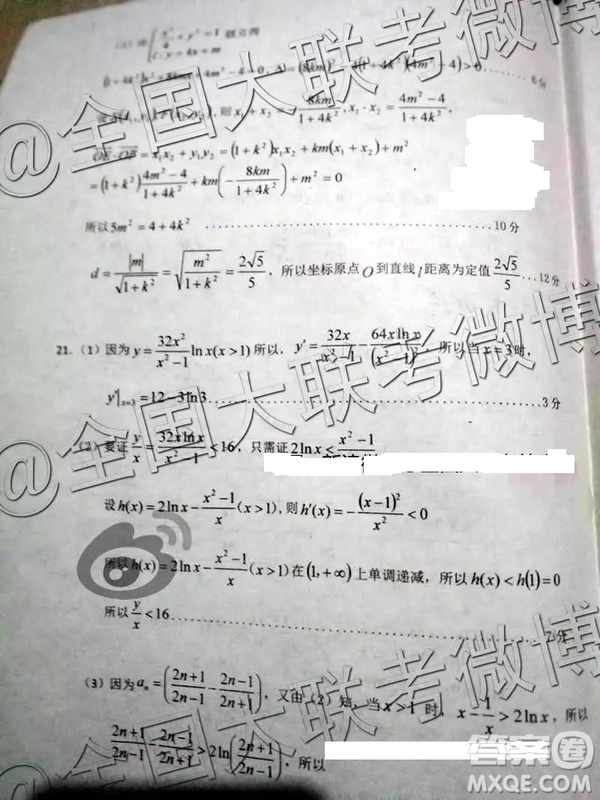 x²/4 + y² = 1
y = kx + m
联立得
设
则 x₁ + x₂ = -8km/(1+4k²), x₁·x₂ = (4m²-4)/(1+4k²),
OE·OB = x₁x₂ + y₁y₂ = (1+k²)x₁x₂ + km(x₁+x₂) + m²
= (1+k²)(4m²-4)/(1+4k²) + km(-8km/(1+4k²)) + m² = 0
所以5m² = 4 + 4k² ………10分
d = |m|/√(1+k²) = √(m²/(1+k²)) = 2√5/5, 所以坐标原点 O 到直线 l 距离为定值 2√5/5 …12分
21. (1) 因为 y = 32x²/(x²-1) ln x (x > 1) 所以, y' = 32x/(x²-1) - 64x ln x/(x²-1)², 所以当 x = 3 时,
y'|x=3 = 12 - 3ln3 ………3分
(2) 要证 y/x = 32x ln x/(x²-1) < 16, 只需证 2ln x < (x²-1)/x
设 h(x) = 2ln x - (x²-1)/x (x > 1), 则 h'(x) = -(x-1)²/x² < 0
所以 h(x) = 2ln x - (x²-1)/x (x > 1) 在 (1, +∞) 上单调递减, 所以 h(x) < h(1) = 0
所以 y/x < 16 ………7分
(3) 因为 aₙ = ((2n+1)/(2n-1) - (2n-1)/(2n+1)), 又由 (2) 知, 当 x > 1 时, x - 1/x > 2ln x, 所以
(2n+1)/(2n-1) - (2n-1)/(2n+1) > 2ln((2n+1)/(2n-1)), 所以
@全国大联考微博
@全国大联考微博
@全国大联考微博
答案圈
MXQE.COM